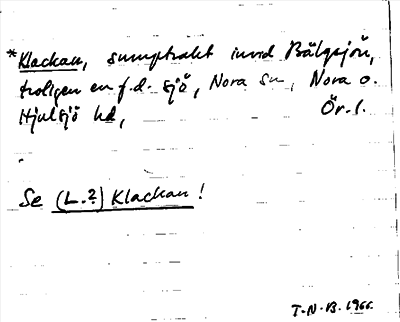 *Klackau, sumptrakt invid Bälgsjön,
troligen en f.d. sjö, Nora sn, Nora o.
Hjulsjö hd, Ör. l.
Se (L.?) Klackau!
T-N-B. 1966.